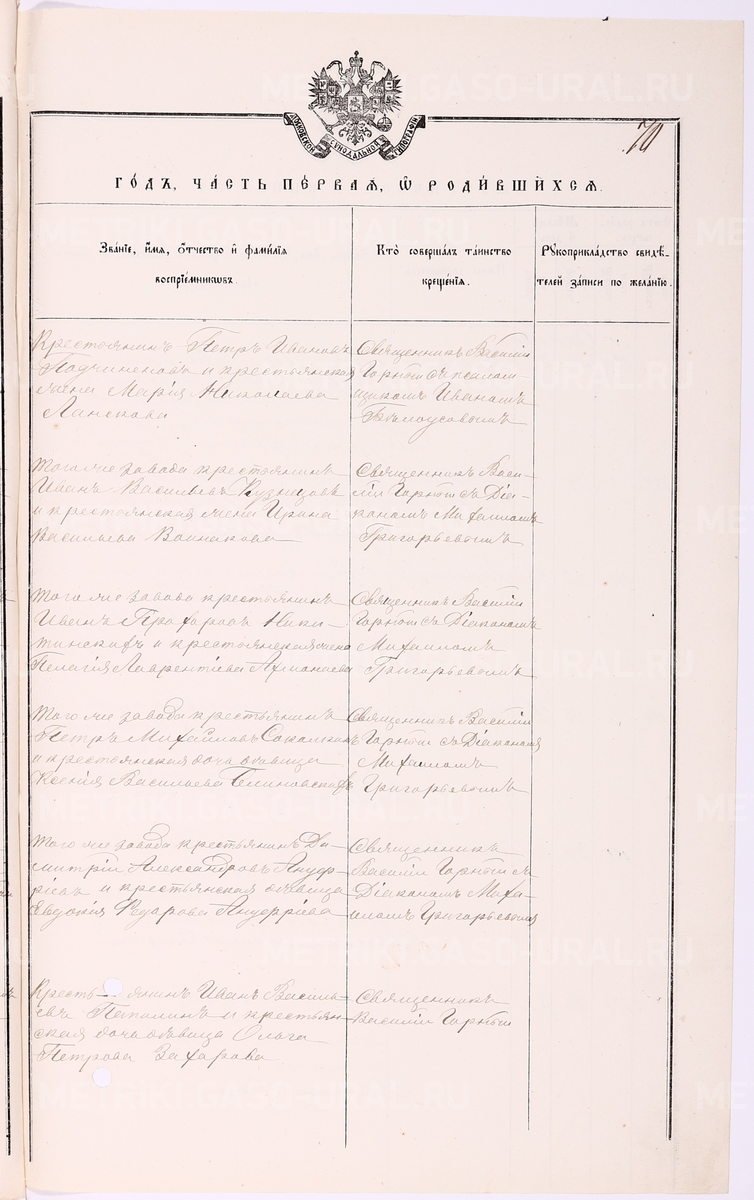 МОСКОВСКОЙ СѴНОДАЛЬНОЙ ТИПОГРАФІИ
70
ГО́ДЪ, ЧА́СТЬ ПЕ́РВАЯ, Ѽ РОДИ́ВШИХСЯ.
Зва́нїе, и҆́мя, ѻ҆́тчество и҆ фами́лїя
воспрїе́мникѡвъ.
Кто̀ соверша́лъ та́инство
креще́нїя.
Рꙋкоприкла́дство свидѣ́-
телей за́писи по жела́нїю.
Крестьянинъ Петръ Ивановъ
и крестьянская
жена Марія Николаева
Ланскова
Священникъ Василій
Горный съ псалом
щикомъ Иваномъ
Бѣлоусовымъ
Того же завода крестьянинъ
Иванъ Васильевъ Кузнецовъ
и крестьянская жена Ирина
Васильева
Священникъ Васи-
лій Горный съ Діа-
кономъ Михаиломъ
Григорьевымъ
Того же завода крестьянинъ
Иванъ Ники-
и крестьянская жена
Пелагія Лаврентіева
Священникъ Василій
Горный съ Діакономъ
Михаиломъ
Григорьевымъ
Того же завода крестьянинъ
Петръ Михайловъ
и крестьянская дочь дѣвица
Ксенія Васильева
Священникъ Василій
Горный съ Діакономъ
Михаиломъ
Григорьевымъ
Того же завода крестьянинъ Ди-
митрій Александровъ Андр-
ѣевъ и крестьянская дѣвица
Евдокія Федорова Андреева
Священникъ
Василій Горный съ
Діакономъ Миха-
иломъ Григорьевымъ
Кресть- янинъ Иванъ Василь-
евъ и крестьян-
ская дочь дѣвица Ольга
Петрова Захарова
Священникъ
Василій Горный
METRIKI.GASO-URAL.RU